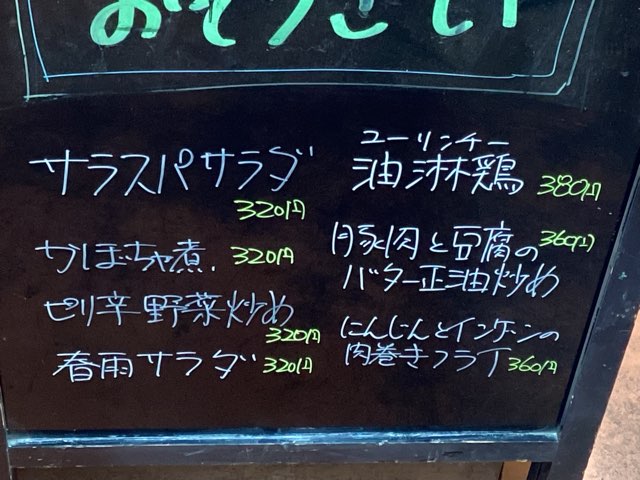 おそうざい
サラスパサラダ
320円
かぼちゃ煮.
320円
ピリ辛野菜炒め
320円
春雨サラダ
320円
ユーリンチー
油淋鶏
380円
豚肉と豆腐の
360円
バター正油炒め
にんじんとインゲンの
肉巻きフライ
360円